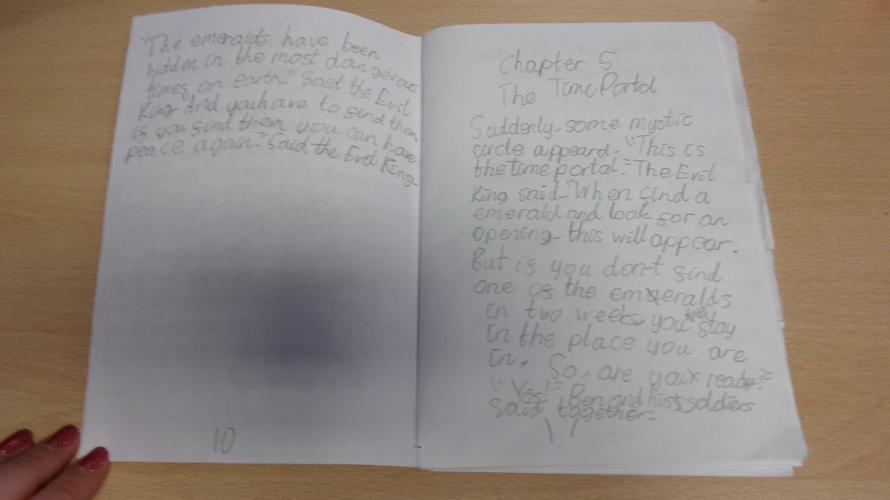 "The emeralds have been
hidden in the most dangerous
times on earth." Said the Evil
King "And you have to find them
if you find them you can have
peace again." Said the Evil King.
10
Chapter 5
The Time Portal
Suddenly some mystic
circle appeard. "This is
the time portal." The Evil
King said "When find a
emerald and look for an
opening this will appear.
But if you don't find
one of the emeralds
in two weeks, you will stay
in the place you are
in. So, are you ready?"
"Yes!" Ben and his soldiers
said together.
11